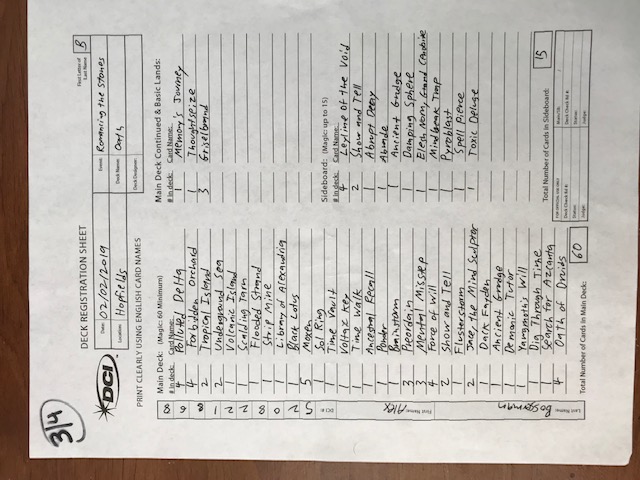 3/4
DECK REGISTRATION SHEET
First Letter of Last Name B
DCI
Date: 02/02/2019
Event: Romancing the Stones
Location: Hopfields
Deck Name: Oath
Deck Designer:
PRINT CLEARLY USING ENGLISH CARD NAMES
Main Deck: (Magic: 60 Minimum)
# in deck: Card Name:
4 Polluted Delta
4 Forbidden Orchard
2 Tropical Island
2 Underground Sea
1 Volcanic Island
1 Scalding Tarn
1 Flooded Strand
1 Strip Mine
1 Library of Alexandria
1 Black Lotus
5 Moxen
1 Sol Ring
1 Time Vault
1 Voltaz Key
1 Time Walk
1 Ancestral Recall
1 Ponder
1 Brainstorm
3 Preordain
3 Mental Misstep
4 Force of Will
2 Show and Tell
1 Flusterstorm
2 Jace, the Mind Sculptor
1 Dack Fayden
1 Ancient Grudge
1 Demonic Tutor
1 Yawgmoth's Will
1 Dig Through Time
1 Search for Azcanta
4 Oath of Druids
Total Number of Cards in Main Deck: 60
Main Deck Continued & Basic Lands:
# in deck: Card Name:
1 Memory's Journey
1 Thoughtseize
3 Griselbrand
Sideboard: (Magic: up to 15)
# in deck: Card Name:
4 Leyline of the Void
2 Show and Tell
1 Abrupt Decay
1 Abrade
1 Ancient Grudge
1 Damping Sphere
1 Elesh Norn, Grand Cenobite
1 Mindbreak Trap
1 Pyroblast
1 Spell Pierce
1 Toxic Deluge
Total Number of Cards in Sideboard: 15
FOR OFFICIAL USE ONLY
Deck Check Rd #:
Status:
Judge:
Main/Sb:
Deck Check Rd #:
Status:
Judge:
Last Name: Bosserman
First Name: Alex
DCI #: 5208221868